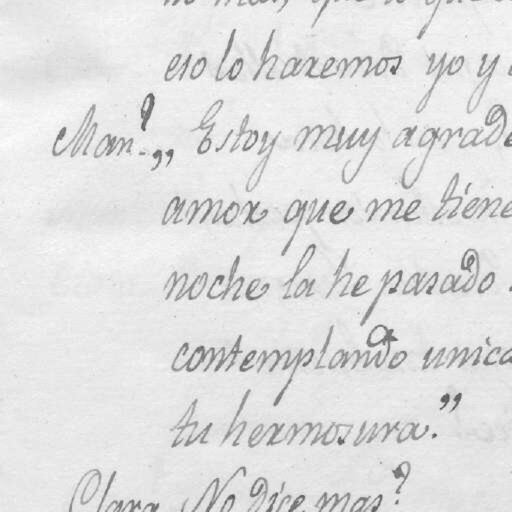 eso lo haremos yo y
Man.? „ Estoy muy agrade
amor que me tiene
noche la he pasado
contemplando unica
tu hermosura."
Clara No dice mas?